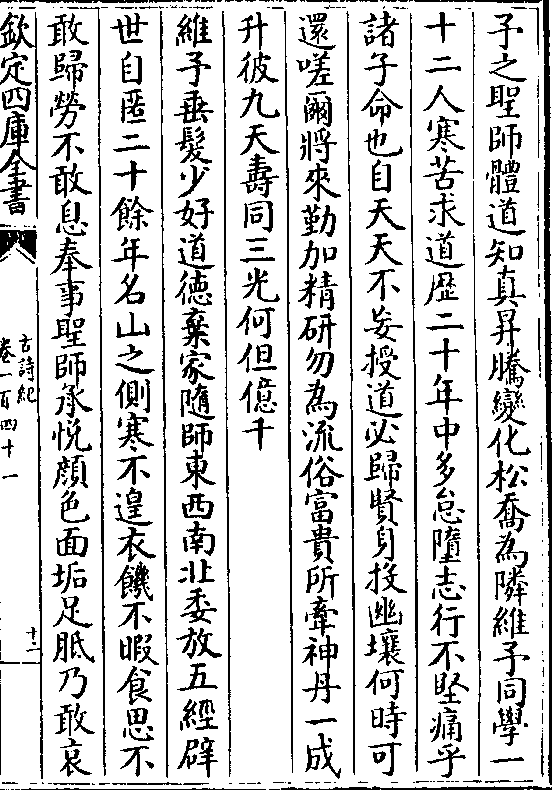 予之聖師體道知真昇騰變化松喬為隣維予同學一
十二人寒苦求道歴二十年中多怠墮志行不堅痛乎
諸子命也自天天不妄授道必歸賢身投幽壤何時可
還嗟爾將來勤加精研勿為流俗富貴所牽神丹一成
升彼九天壽同三光何但億千
維予垂髮少好道德棄家隨師東西南北委放五經辟
世自匿二十餘年名山之側寒不遑衣饑不暇食思不
敢歸勞不敢息奉事聖師承悅顔色面垢足胝乃敢哀
欽定四庫全書
古詩紀
卷一百四十一
十二